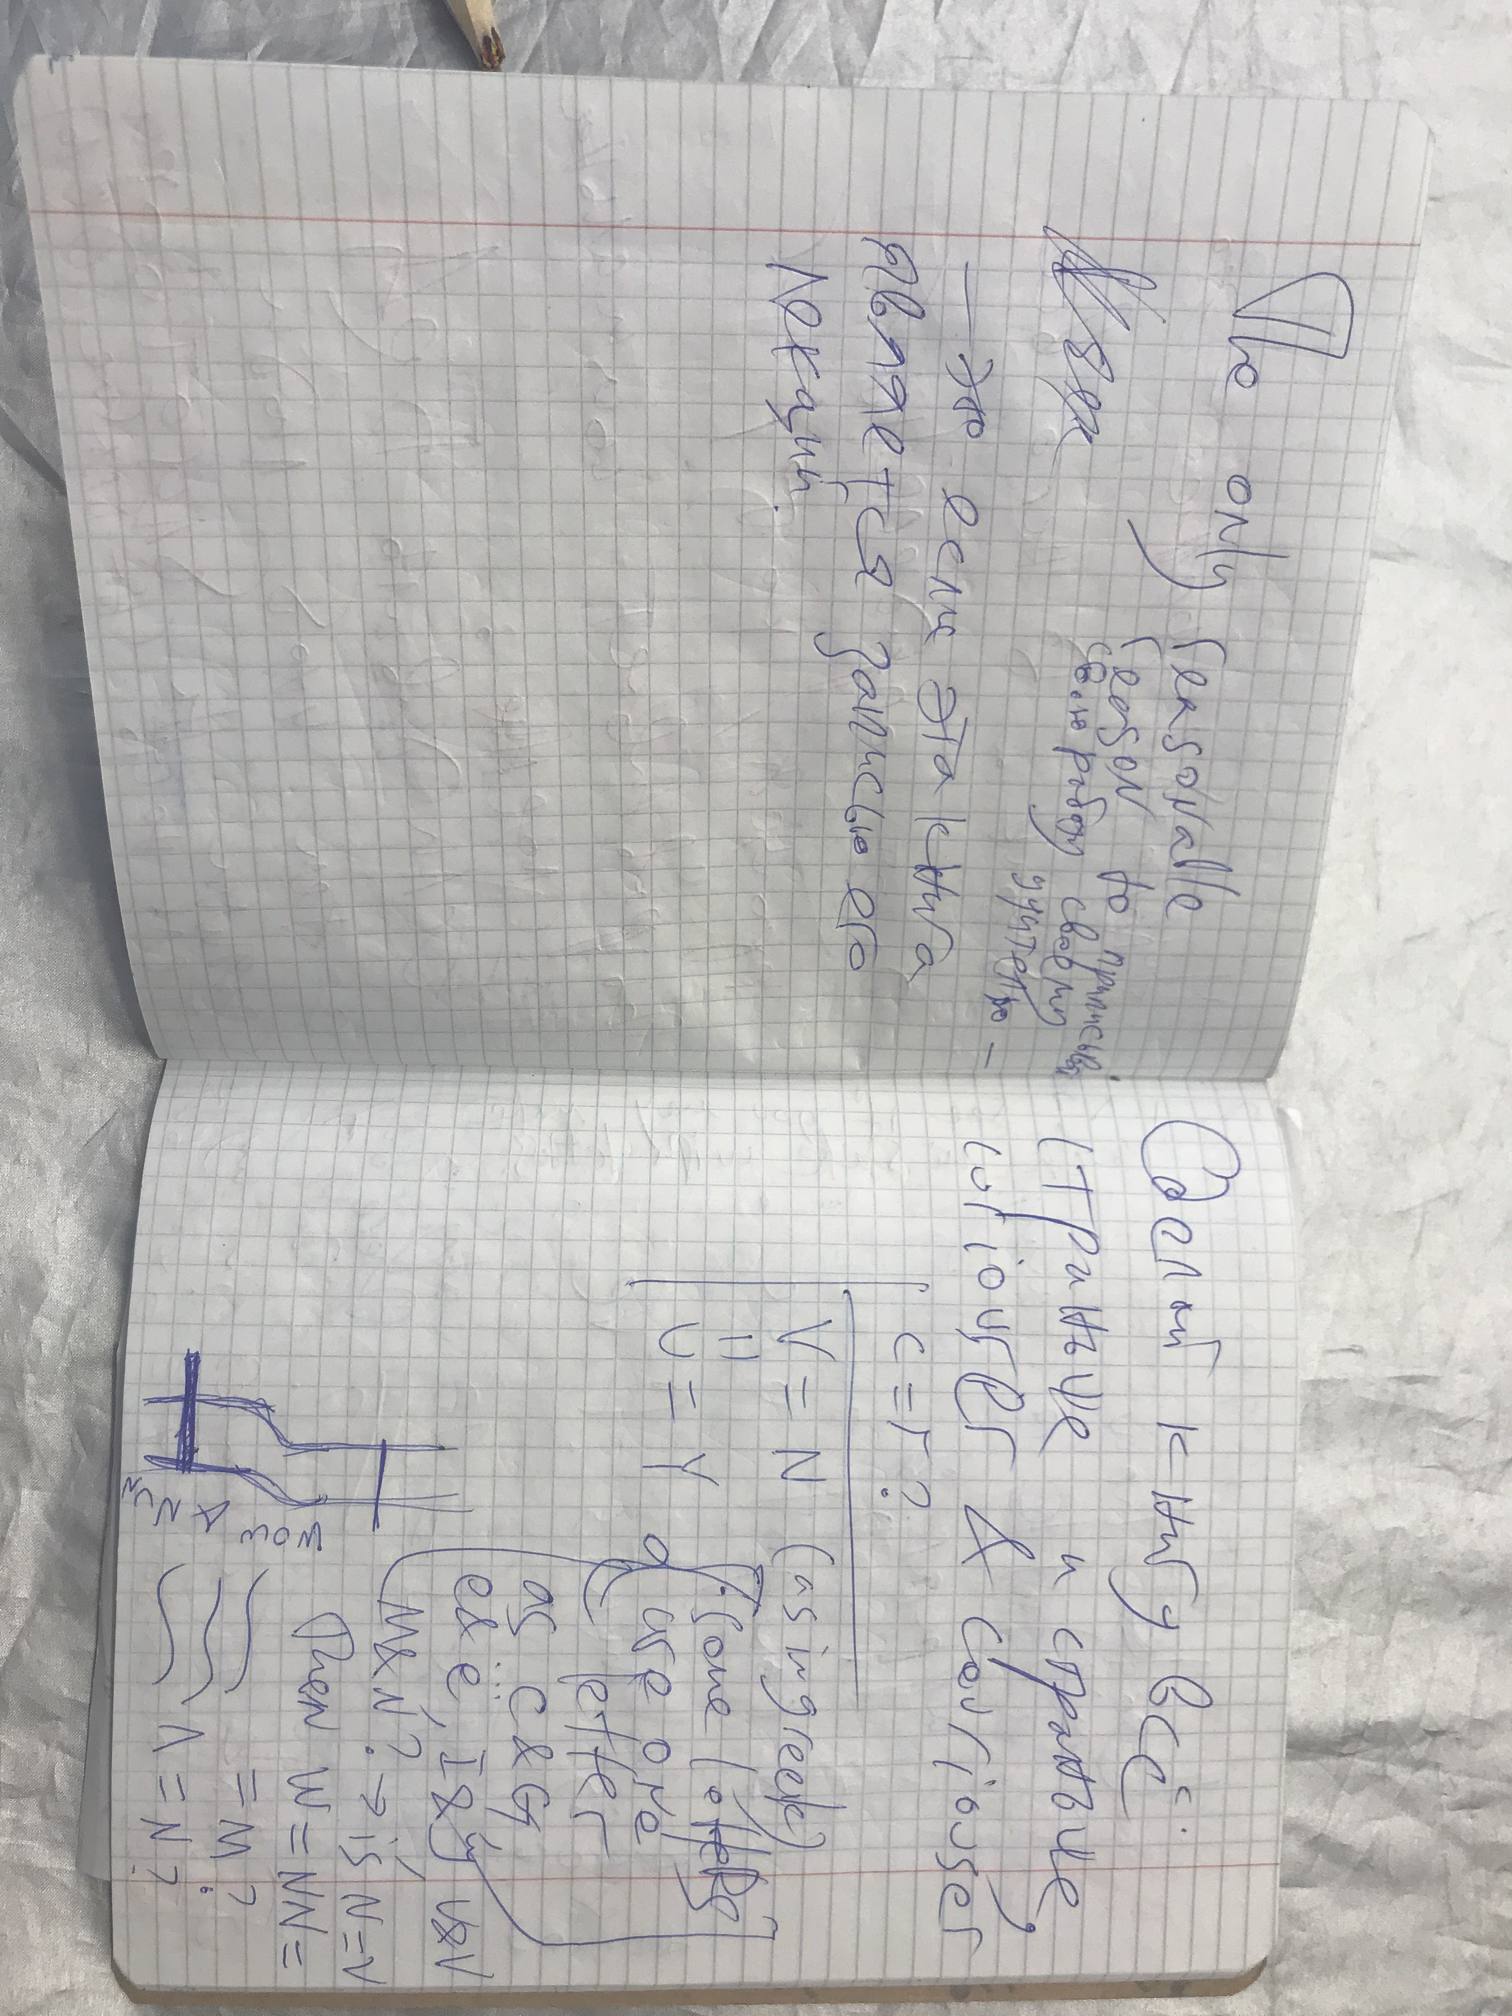 The only reasonable
reason to приписыв
свою работу своему
учителю –
– это если эта книга
является записью его
лекций.
Сделай книгу всё
страньше и страньше,
curiouser & couriouser
c = г?
V = N (as in greek)
U = Y
Some letters
use one
letter
as C & G
e & ё, I & y, U & V
M & N? → is N = V
Then W = NN =
= M?
Λ = N?